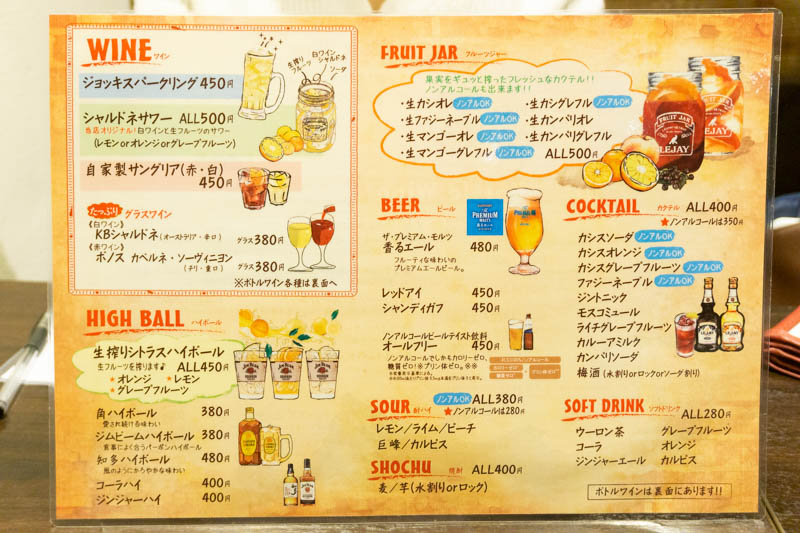 WINE ワイン
ジョッキスパークリング 450円
生搾りフルーツ
白ワインシャルドネ
ソーダ
シャルドネサワー ALL500円
当店オリジナル!白ワインと生フルーツのサワー
(レモンorオレンジorグレープフルーツ)
自家製サングリア(赤・白)
450円
たっぷり グラスワイン
《白ワイン》
KBシャルドネ(オーストラリア・辛口) グラス380円
《赤ワイン》
ボノス カベルネ・ソーヴィニヨン
(チリ・重口) グラス380円
※ボトルワイン各種は裏面へ
HIGH BALL ハイボール
生搾りシトラスハイボール
生フルーツを搾ります♪ ALL450円
★オレンジ ★レモン
★グレープフルーツ
角ハイボール 380円
愛され続ける味わい
ジムビームハイボール 380円
食事によく合うバーボンハイボール
知多ハイボール 480円
風のようにかろやかな味わい
コーラハイ 400円
ジンジャーハイ 400円
FRUIT JAR フルーツジャー
果実をギュッと搾ったフレッシュなカクテル!!
ノンアルコールも出来ます!!
・生カシオレ ノンアルOK
・生カシグレフル ノンアルOK
・生ファジーネーブル ノンアルOK
・生カンパリオレ
・生マンゴーオレ ノンアルOK
・生カンパリグレフル
・生マンゴーグレフル ノンアルOK
ALL500円
FRUIT JAR
LEJAY
BEER ビール
The PREMIUM MALT'S
ザ・プレミアム・モルツ
香るエール 480円
フルーティな味わいの
プレミアムエールビール。
レッドアイ 450円
シャンディガフ 450円
ノンアルコールビールテイスト飲料
オールフリー 450円
ノンアルコールでしかもカロリーゼロ、
糖質ゼロ!※プリン体ゼロ。※※
SOUR 酎ハイ
ノンアルOK ALL380円
★ノンアルコールは280円
レモン/ライム/ピーチ
巨峰/カルピス
SHOCHU 焼酎 ALL400円
麦/芋(水割りorロック)
COCKTAIL カクテル ALL400円
★ノンアルコールは350円
カシスソーダ ノンアルOK
カシスオレンジ ノンアルOK
カシスグレープフルーツ ノンアルOK
ファジーネーブル ノンアルOK
ジントニック
モスコミュール
ライチグレープフルーツ
カルーアミルク
カンパリソーダ
梅酒(水割りorロックorソーダ割り)
SOFT DRINK ソフトドリンク
ALL280円
ウーロン茶 グレープフルーツ
コーラ オレンジ
ジンジャーエール カルピス
ボトルワインは裏面にあります!!